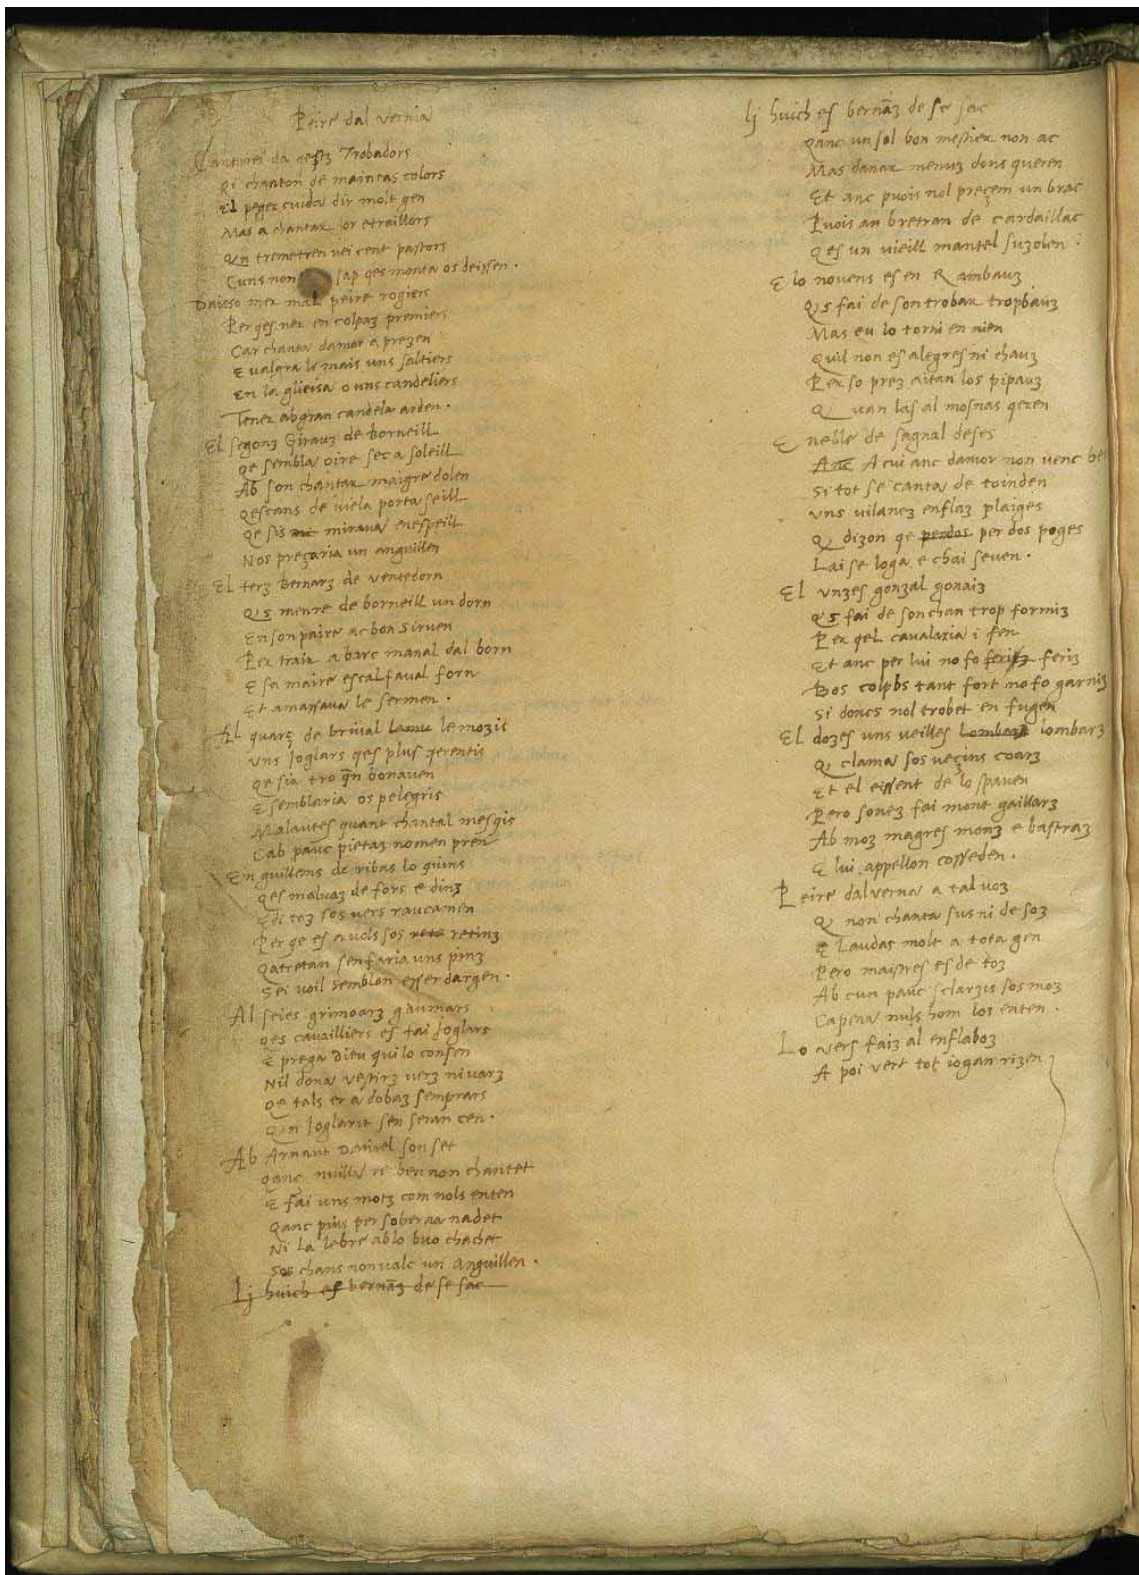 Peire dal vernia
Cantarei da qestz Trobadors
Qi chanton de maintas colors
El peger cuida dir molt gen
Mas a chantar lor etraillors
Qn trametren vei cent pastors
Cuns non sap qes monta os deissen.
Daisso mer mal peire rogiers
Per qes ner en colpaz premiers
Car chanta damor a prezen
E valgra le mais uns saltiers
En la glieisa o uns candeliers
Tener ab gran candela arden.
El segonz Girauz de borneill
Qe sembla oire sec a soleill
Ab son chantar maigre dolen
Qescans de viela porta seill
Qe sis mirava enespeill
Nos preçaria un anguillen
El terz Bernarz de ventedorn
Qs menre de borneill un dorn
En son paire ac bon sirven
Per traire a barc manal dal born
E sa maire escalfaval forn
Et amassava le sermen.
Al quarç de brival lemozis
Uns Joglars qes plus qerentis
Qe sia tro qn bonaven
E semblaria os pelegris
Malautes quant chantal mesqis
Cab pauc pietaz nomen pren
En guillems de ribas lo quins
Qes malvaz de fors e dinz
E di toz sos vers raucamen
Per qe es avols sos retinz
Qatretan sen faria uns pinz
Sei voil semblon esser dargen.
Al seies grimoarz gaumars
Qes cavailliers es fai Joglars
E prega dieu qui lo consen
Nil dona vestirz verz ni varz
Qe tals er adobaz semprars
Qn Joglarit sen seran cen.
Ab Arnaut Daniel son set
Qanc nuilla re ben non chantet
E fai uns motz com nols enten
Qanc puis per soberna nadet
Ni la lebre ab lo buo chachet
Sos chans non valc un anguillen.
Lj huich es bernāz de se sac
lj huich es bernāz de se sac
Qanc un sol bon mestier non ac
Mas danar menuz dons queren
Et anc puois nol preçem un brac
Puois an bretran de cardaillac
Qes un vieill mantel suzolen.
E lo novens es en Rambauz
Qs fai de son trobar trop bauz
Mas eu lo torni en nien
Quil non es alegres ni chauz
Per so prez aitan los pipauz
Q van las al mosnas qeren
E neble de sagnal deses
Anc A cui anc damor non venc be
Si tot se canta de toinden
Uns vilanez enflaz plaiges
Q dizon qe perdos per dos poges
Lai se loga e chai seven.
El unzes gonzal gonaiz
Qs fai de son chan trop formiz
Per qel cavalaria i fen
Et anc per lui no fo feriz feriz
Bos colpbs tant fort no fo garniz
Si doncs nol trobet en fugen
El dozes uns veilles lombarz
Q clama sos veçins coarz
Et el eissent de lo spaven
Pero sonez fai mont gaillarz
Ab moz magres monz e bastraz
E lui appellon cosseden.
Peire dalverna a tal voz
Q non chanta sus ni de soz
E Laudas molt a tota gen
Pero maistres es de toz
Ab cun pauc sclarzis sos moz
Capena nuls hom los enten.
Lo vers faiz al enflaboz
A poi vert tot iogan rizen